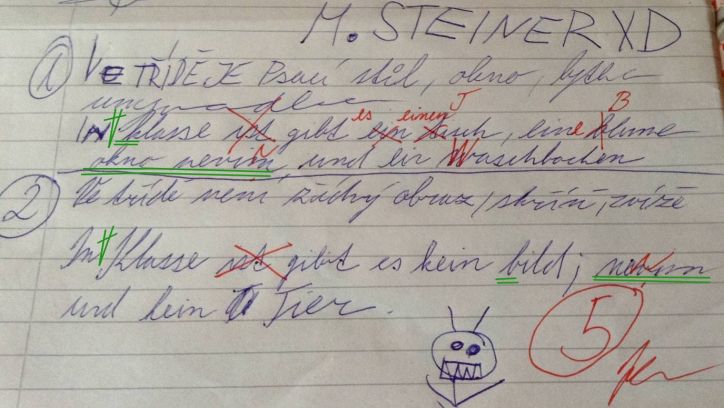 M. STEINER XD
1 VE TŘÍDĚ JE Psací stůl, okno, kytka
umyvadlo
es einen T B
IN Klasse ist gibt ein tisch, eine blume
okno nevim, und ein Waschbecken
2 Ve třídě není žádný obraz, skříň, zvíře
In Klasse ist gibt es kein bild; nevim
und kein Tier.
5